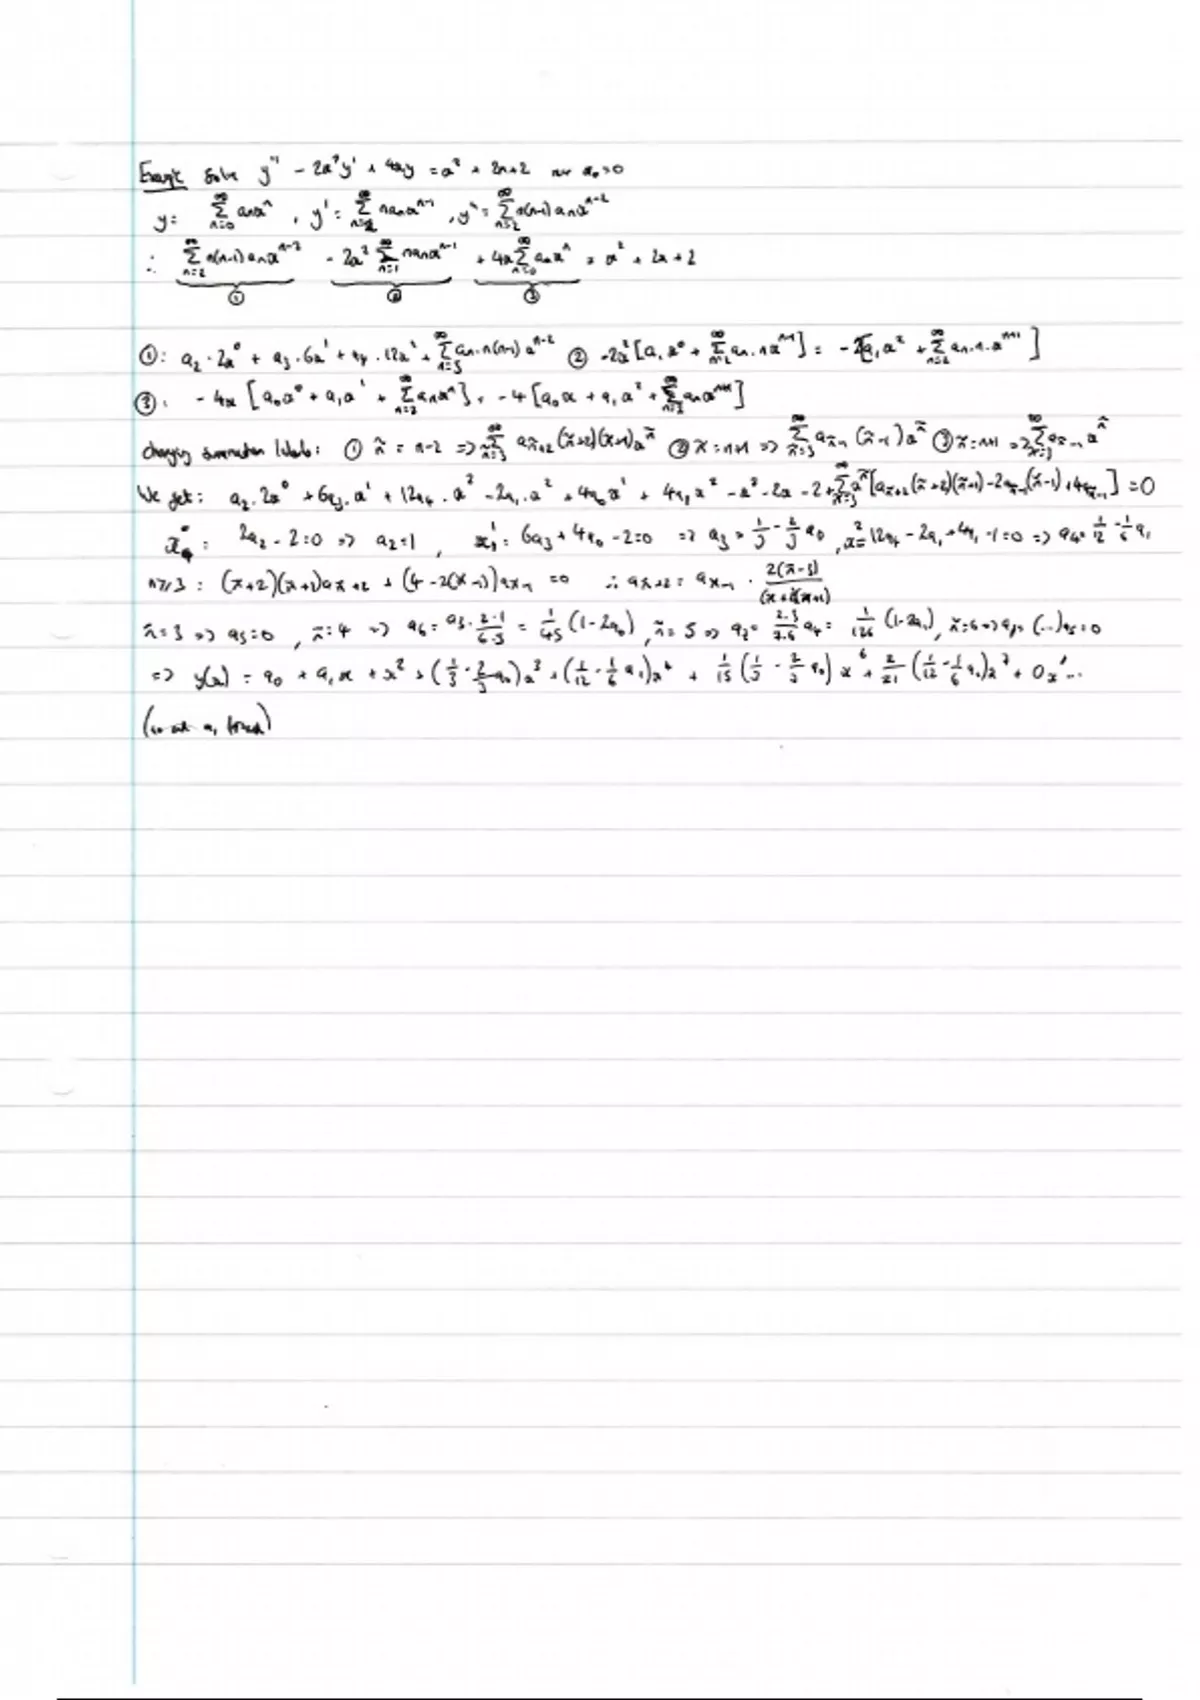 Example Solve y'' - 2x²y' + 4xy = x² + 2x + 2 near x₀ = 0
y = Σ_{n=0}^∞ aₙxⁿ , y' = Σ_{n=1}^∞ naₙxⁿ⁻¹ , y'' = Σ_{n=2}^∞ n(n-1)aₙxⁿ⁻²
∴ Σ_{n=2}^∞ n(n-1)aₙxⁿ⁻² - 2x² Σ_{n=1}^∞ naₙxⁿ⁻¹ + 4x Σ_{n=0}^∞ aₙxⁿ = x² + 2x + 2
① ② ③
①: a₂·2x⁰ + a₃·6x¹ + a₄·12x² + Σ_{n=5}^∞ aₙ·n(n-1)xⁿ⁻² ② -2x²[a₁x⁰ + Σ_{n=2}^∞ aₙ·nxⁿ⁻¹] = -2[a₁x² + Σ_{n=2}^∞ aₙ·n·xⁿ⁺¹]
③: -4x[a₀x⁰ + a₁x¹ + Σ_{n=2}^∞ aₙxⁿ] = -4[a₀x + a₁x² + Σ_{n=2}^∞ aₙxⁿ⁺¹]
changing summation labels: ① ñ = n-2 => Σ_{ñ=3}^∞ a_{ñ+2}(ñ+2)(ñ+1)x^ñ ② ñ = n+1 => Σ_{ñ=3}^∞ a_{ñ-1}(ñ-1)x^ñ ③ ñ = n+1 => Σ_{ñ=3}^∞ a_{ñ-1}x^ñ
We get: a₂·2x⁰ + 6a₃·x¹ + 12a₄·x² - 2a₁·x² + 4a₀x¹ + 4a₁x² - x² - 2x - 2 + Σ_{ñ=3}^∞ x^ñ[a_{ñ+2}(ñ+2)(ñ+1) - 2a_{ñ-1}(ñ-1) + 4a_{ñ-1}] = 0
x⁰: 2a₂ - 2 = 0 => a₂ = 1 , x¹: 6a₃ + 4a₀ - 2 = 0 => a₃ = 1/3 - 2/3 a₀ , x²: 12a₄ - 2a₁ + 4a₁ - 1 = 0 => a₄ = 1/12 - 1/6 a₁
n ≥ 3: (ñ+2)(ñ+1)a_{ñ+2} + (4 - 2(ñ-1))a_{ñ-1} = 0 ∴ a_{ñ+2} = a_{ñ-1} · 2(ñ-3)/((ñ+2)(ñ+1))
ñ = 3 => a₅ = 0 , ñ = 4 => a₆ = a₃·2·1/6·5 = 1/45 (1 - 2a₀) , ñ = 5 => a₇ = 2·2/7·6 a₄ = 1/126 (1 - 2a₁) , ñ = 6 => a₈ = (...)a₅ = 0
=> y(x) = a₀ + a₁x + x² + (1/3 - 2/3 a₀)x³ + (1/12 - 1/6 a₁)x⁴ + 1/15 (1/3 - 2/3 a₀)x⁶ + 2/21 (1/12 - 1/6 a₁)x⁷ + 0x⁸...